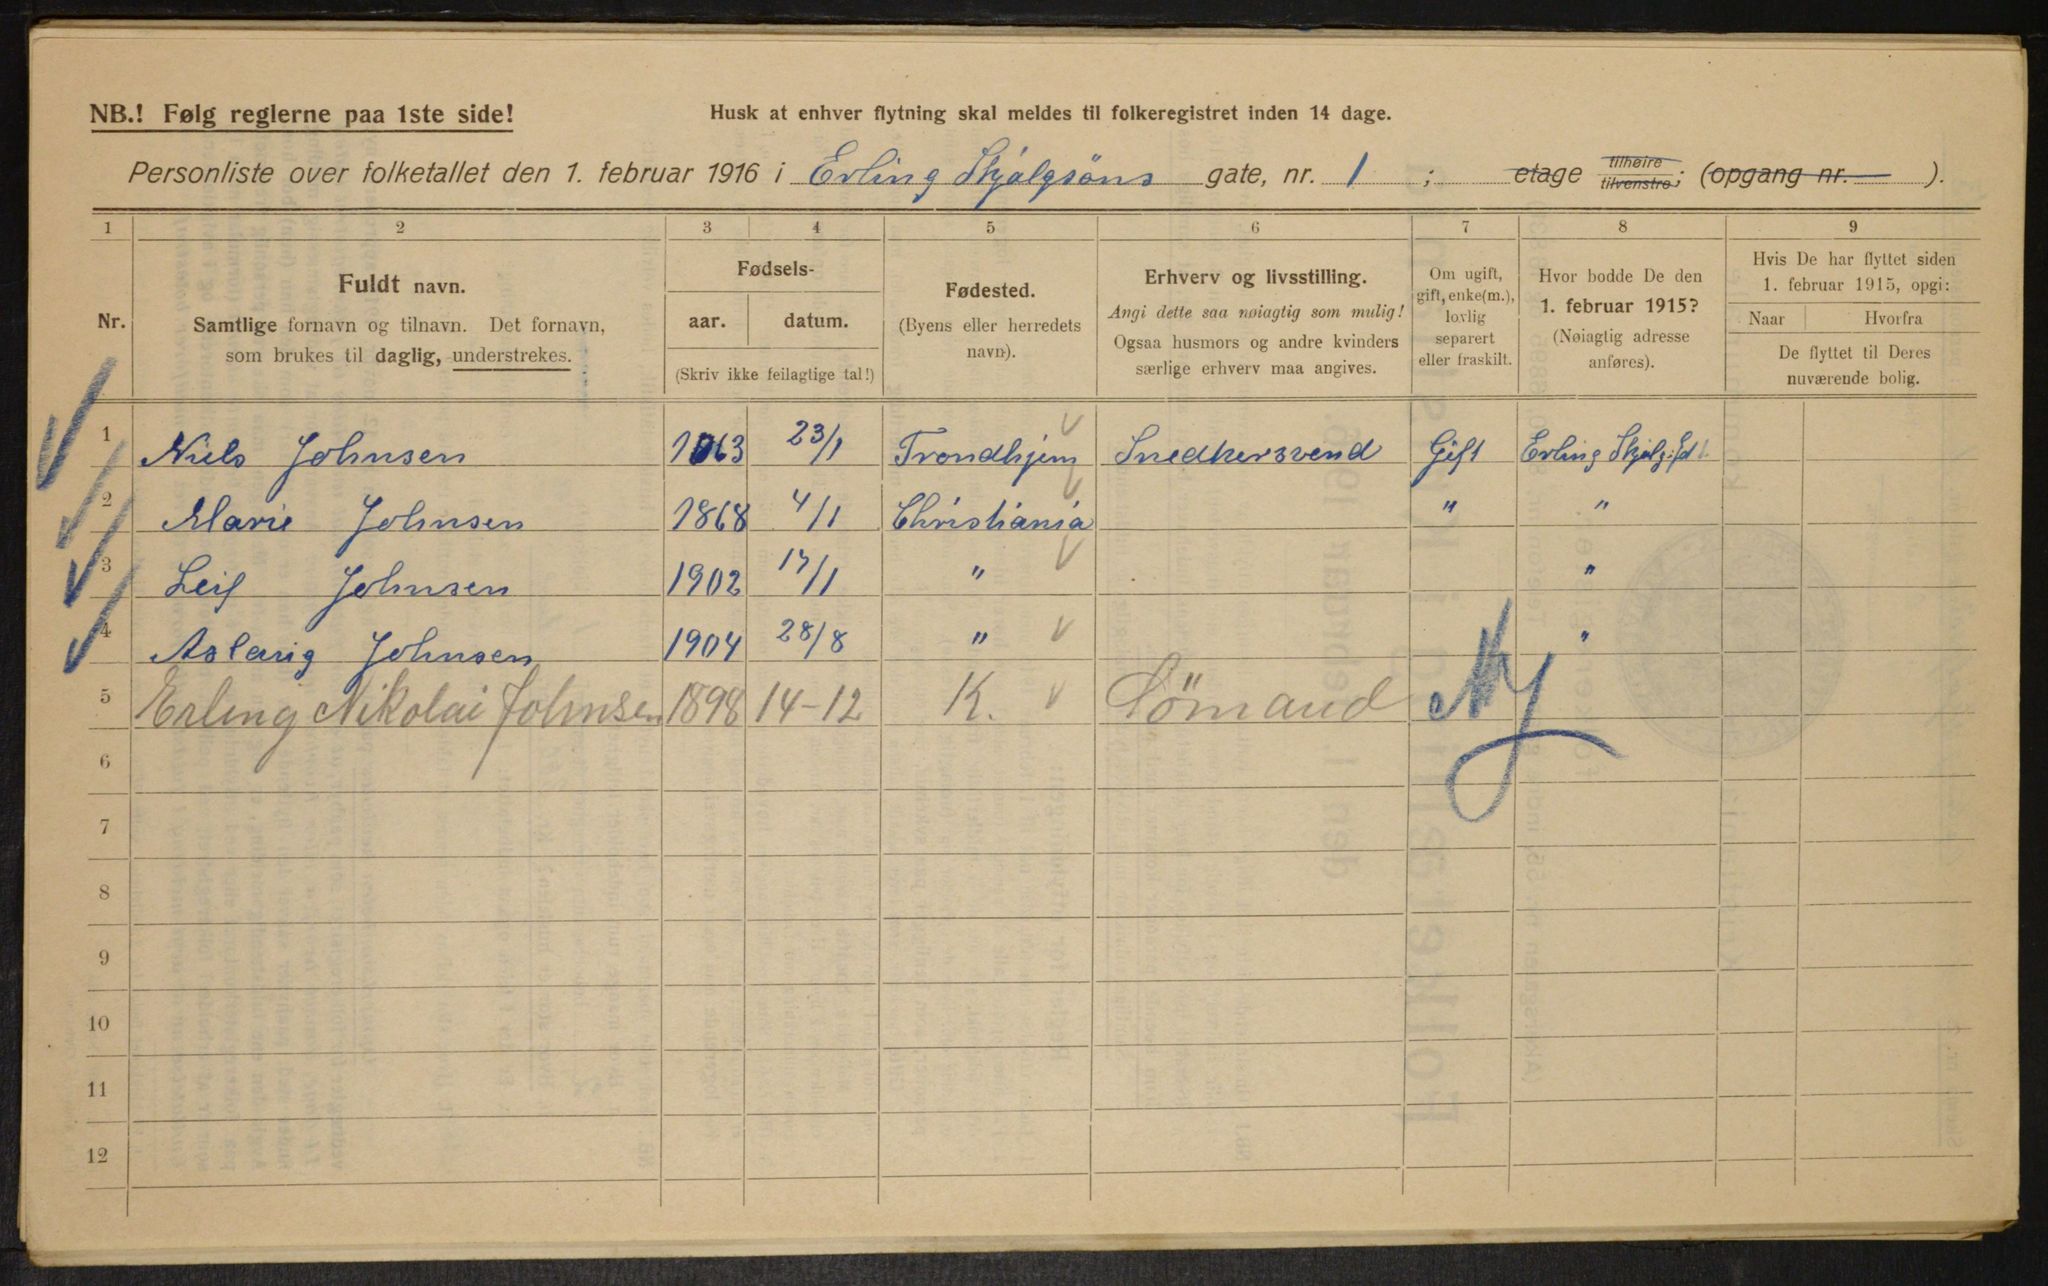 NB.! Følg reglerne paa 1ste side!
Husk at enhver flytning skal meldes til folkeregistret inden 14 dage.
Personliste over folketallet den 1. februar 1916 i Erling Skjalgsöns gate, nr. 1 ; etage tilhøire tilvenstre; (opgang nr. ).
1 2 3 4 5 6 7 8 9
Nr.
Fuldt navn.
Samtlige fornavn og tilnavn. Det fornavn,
som brukes til daglig, understrekes.
Fødsels-
aar. datum.
(Skriv ikke feilagtige tal!)
Fødested.
(Byens eller herredets
navn).
Erhverv og livsstilling.
Angi dette saa nøiagtig som mulig!
Ogsaa husmors og andre kvinders
særlige erhverv maa angives.
Om ugift,
gift, enke(m.),
lovlig
separert
eller fraskilt.
Hvor bodde De den
1. februar 1915?
(Nøiagtig adresse
anføres).
Hvis De har flyttet siden
1. februar 1915, opgi:
Naar Hvorfra
De flyttet til Deres
nuværende bolig.
1 Niels Johnsen 1863 23/1 Trondhjem Snedkersvend Gift Erling Skjalgs.
2 Marie Johnsen 1868 4/1 Christiania " "
3 Leif Johnsen 1902 17/1 " "
4 Aslaug Johnsen 1904 28/8 " "
5 Erling Nikolai Johnsen 1898 14-12 K. Sömand Ny
6
7
8
9
10
11
12